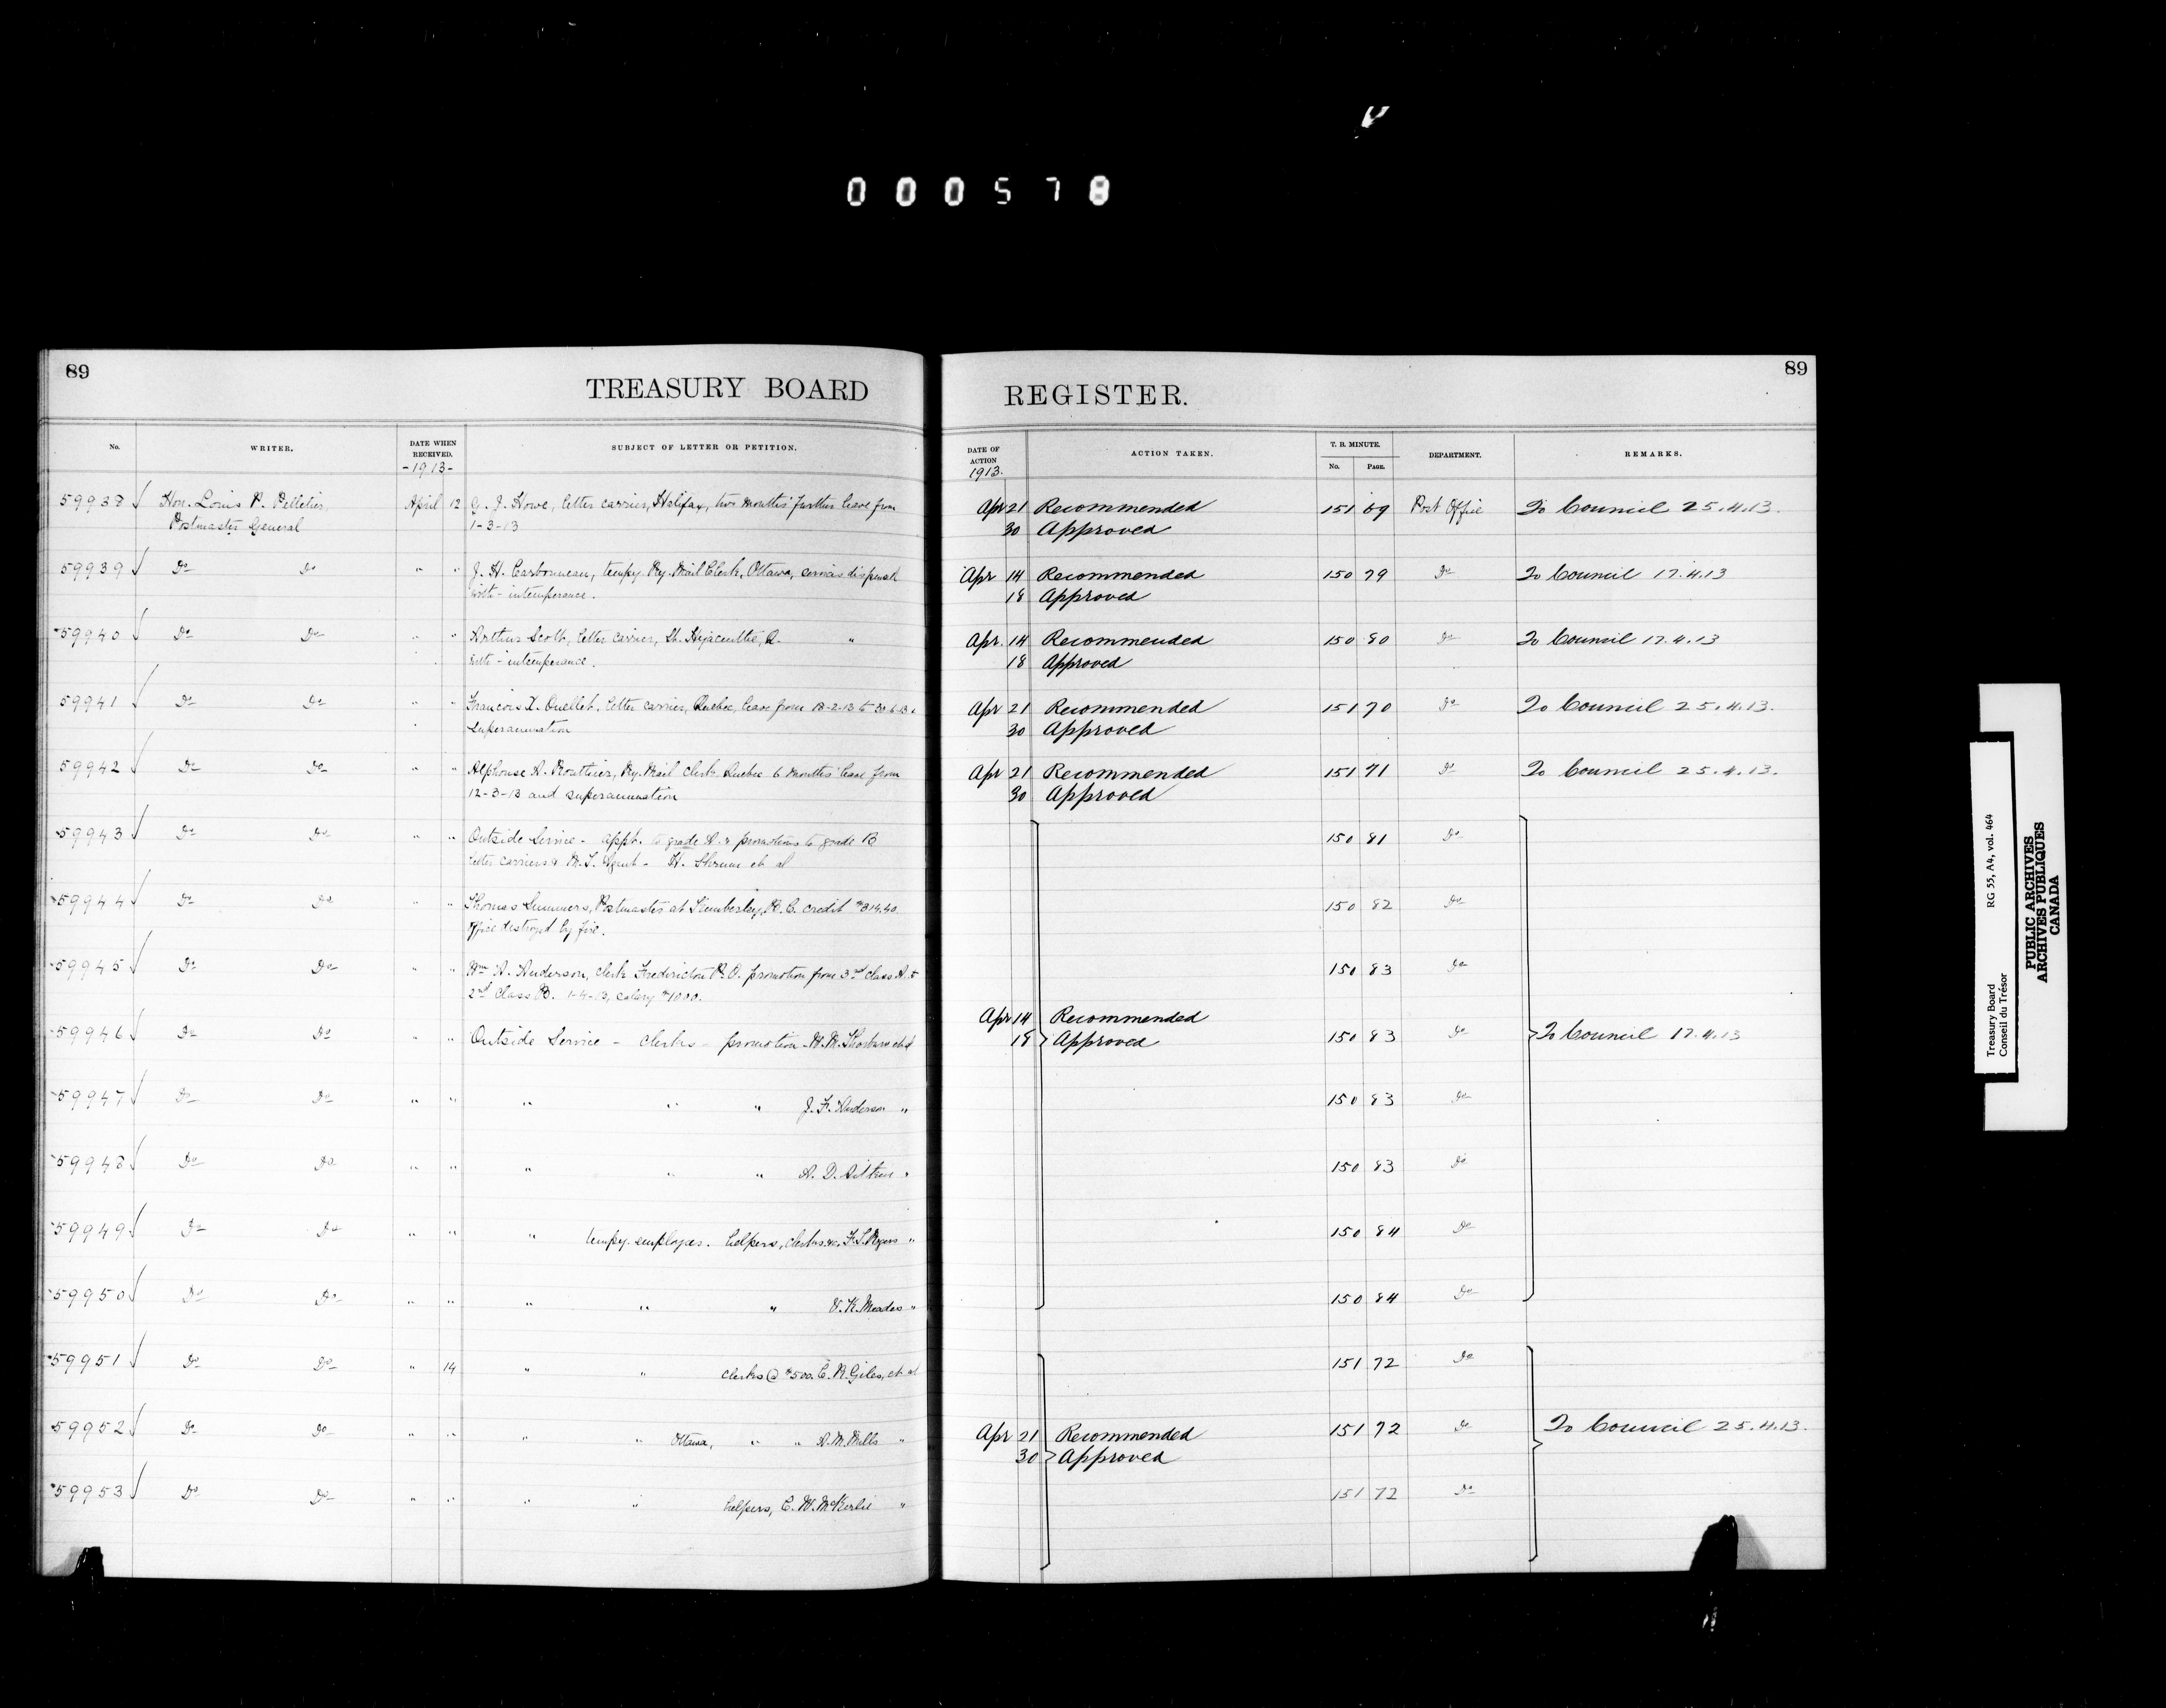 000578
89
TREASURY BOARD
REGISTER.
89
No.
WRITER.
DATE WHEN RECEIVED.
-1913-
SUBJECT OF LETTER OR PETITION.
DATE OF ACTION
1913.
ACTION TAKEN.
T. B. MINUTE.
No.
PAGE.
DEPARTMENT.
REMARKS.
59938 Hon. Louis P. Pelletier, April 12 G. J. Howe, letter carrier, Halifax, two months' further leave from Apr 21 Recommended 151 69 Post Office To Council 25.4.13.
Postmaster General 1-3-13 30 Approved
59939 Do Do " " J. H. Carbonneau, tempy. Ry. Mail Clerk, Ottawa, services dispensed Apr 14 Recommended 150 79 Do To Council 17.4.13
with - intemperance. 18 Approved
59940 Do Do " " Arthur Scott, letter carrier, St. Hyacinthe, Q. " Apr. 14 Recommended 150 80 Do To Council 17.4.13
with - intemperance. 18 Approved
59941 Do Do " " Francois X. Ouellet, letter carrier, Quebec, leave from 13-2-13 to 30-6-13 & Apr 21 Recommended 151 70 Do To Council 25.4.13.
superannuation 30 Approved
59942 Do Do " " Alphonse A. Routhier, Ry. Mail Clerk, Quebec 6 months' leave from Apr 21 Recommended 151 71 Do To Council 25.4.13.
12-3-13 and superannuation 30 Approved
59943 Do Do " " Outside Service - appt. to grade A. & promotions to grade B 150 81 Do
letter carriers & M. T. Agent - H. et al
59944 Do Do " " Thomas Summers, Postmaster at Kimberley, B.C. credit $314.40 150 82 Do
office destroyed by fire.
59945 Do Do " " Wm A. Anderson, Clerk Fredericton P.O. promotion from 3rd Class A. to 150 83 Do
2nd Class B. 1-4-13, salary $1000.
Apr 14 Recommended
59946 Do Do " " Outside Service - Clerks - promotion - W. M. et al 18 Approved 150 83 Do To Council 17.4.13
59947 Do Do " " " " " J. F. Anderson " 150 83 Do
59948 Do Do " " " " " A. D. Aitken " 150 83 Do
59949 Do Do " " " tempy. employes. helpers, clerks &c. F. S. Rogers " 150 84 Do
59950 Do Do " " " " " V. K. Meades " 150 84 Do
59951 Do Do " 14 " " Clerks @ $500. C. R. Giles, et al 151 72 Do
59952 Do Do " " " " Ottawa, " " A. M. Mills " Apr 21 Recommended 151 72 Do To Council 25.4.13.
30 Approved
59953 Do Do " " " " helpers, C. W. McKerlie " 151 72 Do
Treasury Board RG 55, A4, vol. 464
Conseil du Trésor
PUBLIC ARCHIVES
ARCHIVES PUBLIQUES
CANADA